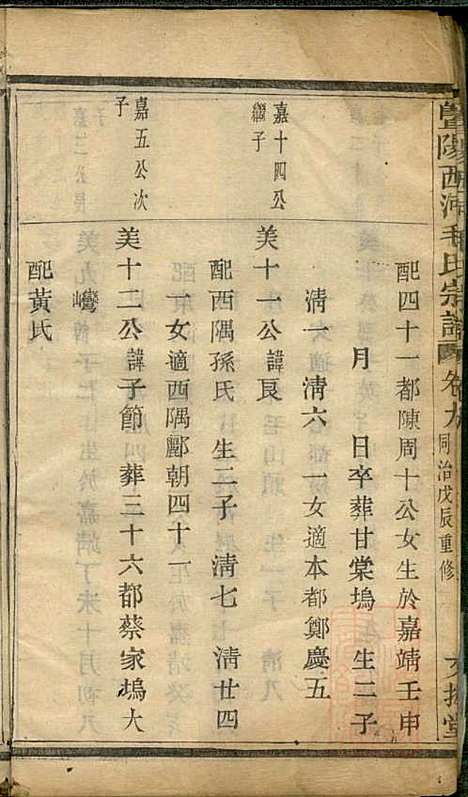 暨陽西河毛氏宗譜 卷九 同治戊辰重修
配四十一都陳周十公女生於嘉靖壬申
月 日卒葬甘棠塢 生二子
清一 清六 一女適本都鄭慶五
嘉十四公
繼子
美十一公諱艮
配西隅孫氏 生二子 清七 清廿四
一女適西隅酈朝四十一
嘉五公次
子
美十二公諱子節葬三十六都蔡家塢大
配黃氏